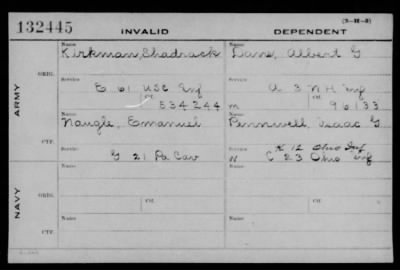 132445
INVALID
DEPENDENT
(3-H-2)
ARMY
ORIG.
Name
Kirkman, Shadrack
Name
Lane, Albert G
Service
E 61 USC Inf
Service
A 3 N H Inf
Ctf.
534244
m
Ctf.
96133
CTF.
Name
Naugle, Emanuel
Name
Pennwell, Isaac G
Service
G 21 Pa Cav
Service
K 12 Ohio Inf
W C 23 Ohio Inf
NAVY
ORIG.
Name
Name
Service
Ctf.
Service
Ctf.
CTF.
Name
Name